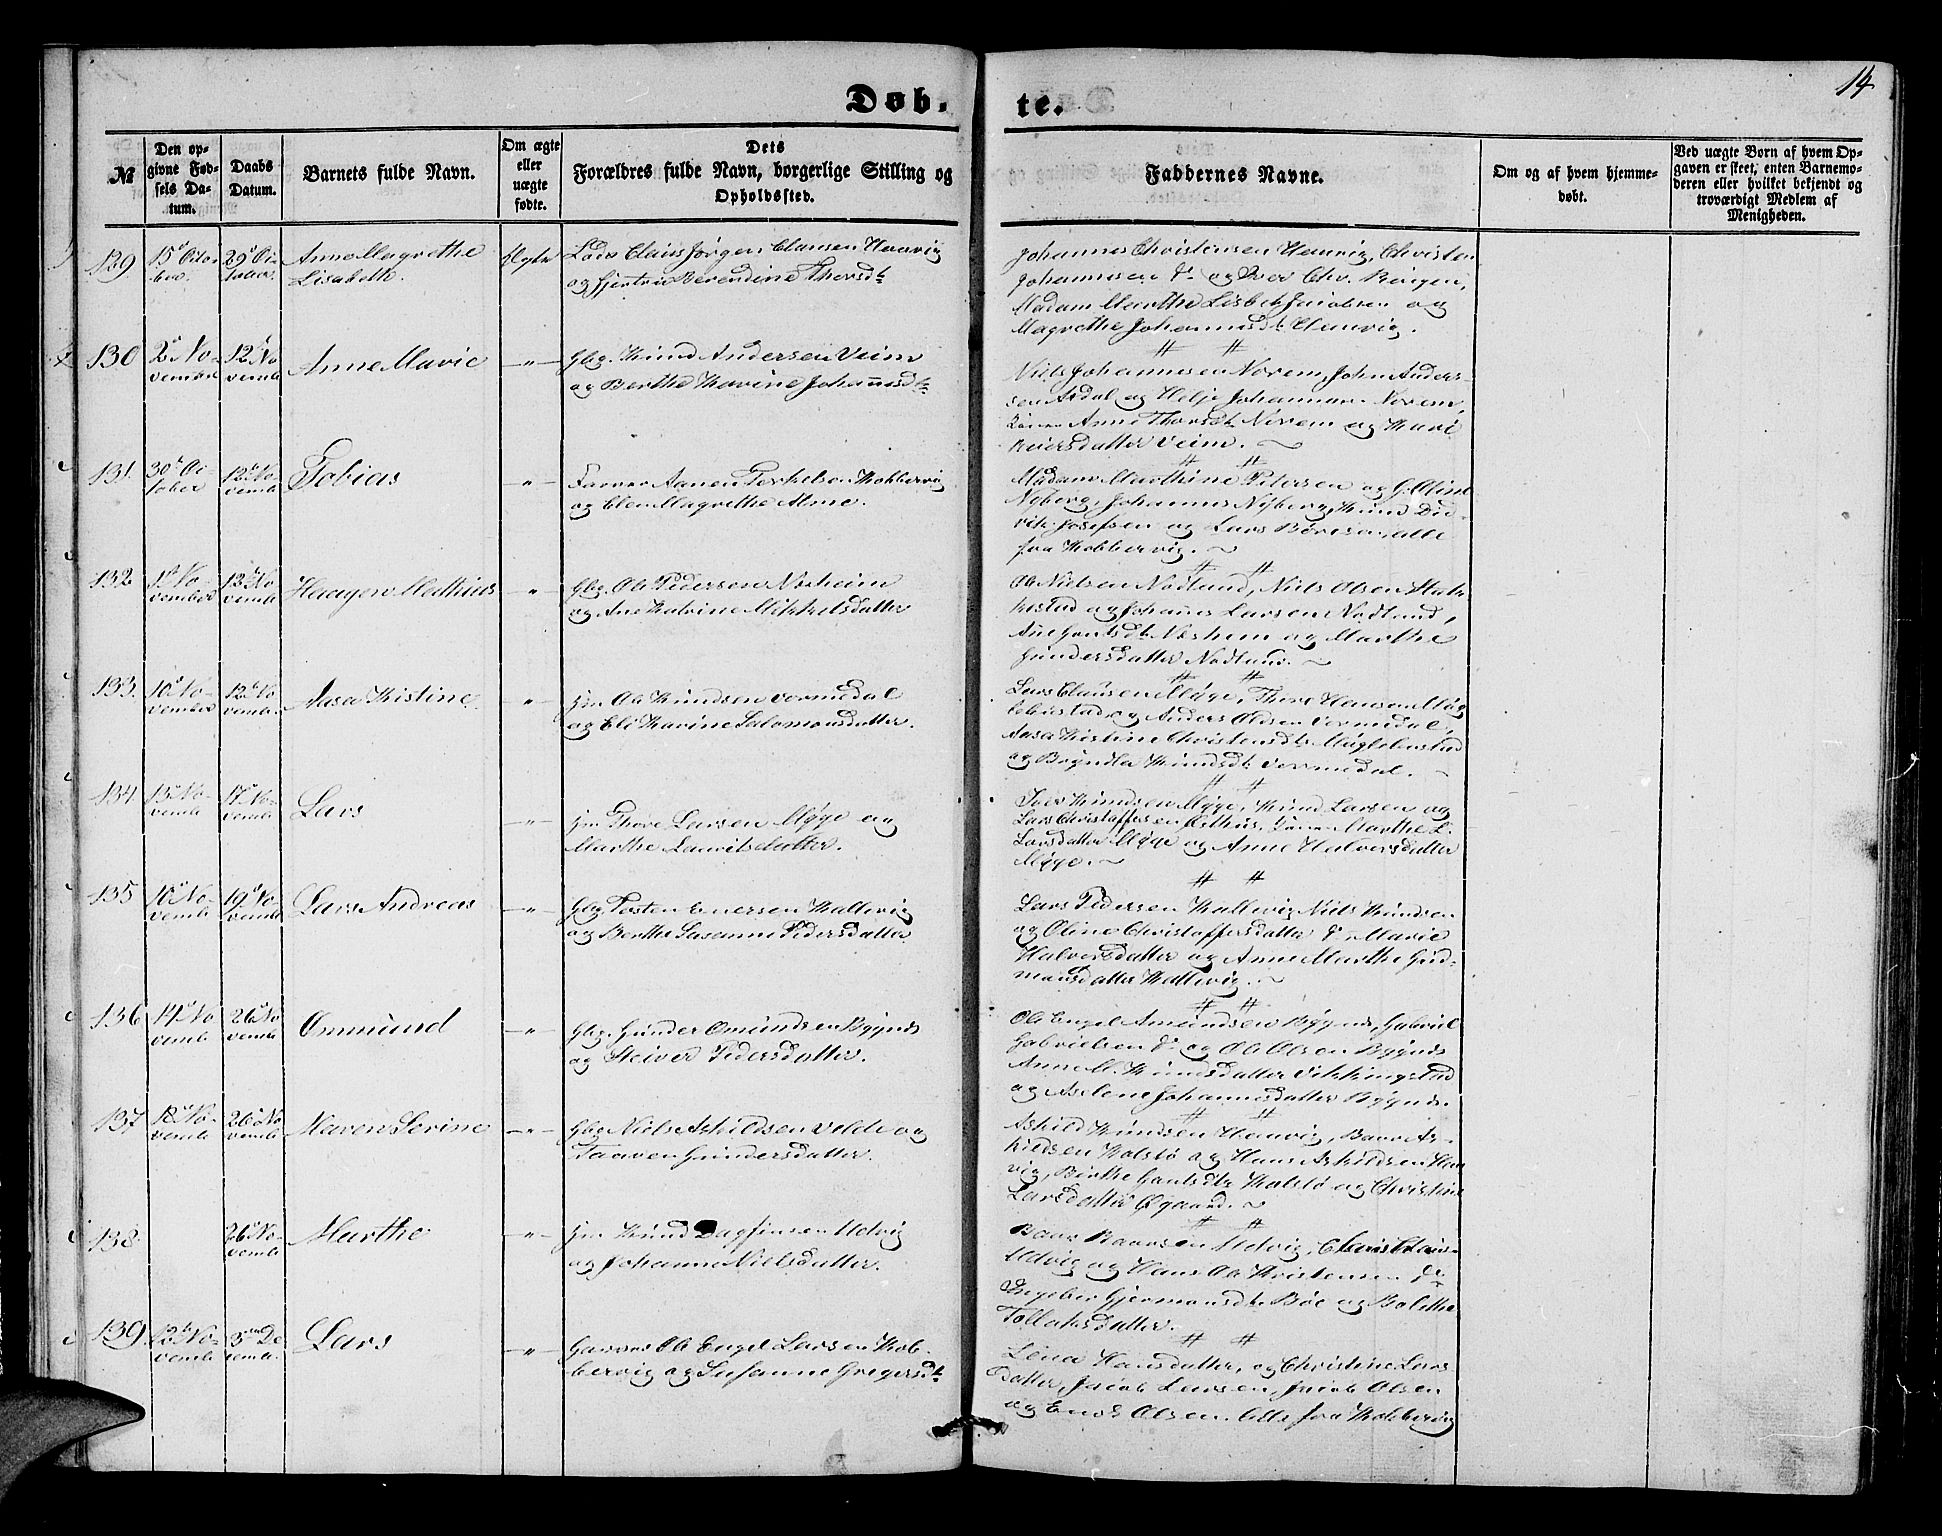 Døb-
te.
14
№
Den op-
givne Fød-
sels Da-
tum.
Daabs
Datum.
Barnets fulde Navn.
Om ægte
eller
uægte
fødte.
Dets
Forældres fulde Navn, borgerlige Stilling og
Opholdssted.
Faddernes Navne.
Om og af hvem hjemme-
døbt.
Ved uægte Børn af hvem Op-
gaven er skeet, enten Barnemo-
deren eller hvilket bekjendt og
troværdigt Medlem af
Menigheden.
129
15d Octo-
ber
29d Oc-
tober
Anne Magrethe
Lisabeth
Ægte
Lods Claus Jørgen Clausen Haavig
og Gjertru Berendine Thorsdt
Johannes Christensen Haavig, Christen
Johannesen do og Iver Chr. Reigen,
Madam Marthe Lisbet Jacobsen og
Magrethe Johannesdt Haavig.
130
2d No-
vember
12d No
vembr
Anne Marie
-"-
Gbr. Knud Andersen Veim
og Berthe Karine Johannsdtr
Niels Johannesen Norem, John Anders-
sen Ardal og Helje Johannesen Norem,
Anne Thorsdt Norem og Kari
Reiersdatter Veim.
131.
30d Oc-
tober
12d No-
vembr
Tobias
-"-
Aanen Terkelsen Kobbervig
og Elen Magrethe Asme.
Madam Marthine Petersen og G. Oline
Nyberg, Johannes Nyberg, Knud Did-
rik Josefsen og Lars Børesen, alle
fra Kobbervig.
132
1d No-
vember
12d No
vembr
Haagen Mathias
-"-
Gbr. Ole Pedersen Nesheim
og Ane Katrine Mikkelsdatter
Ole Nielsen Nodland, Niels Olsen Hak-
kestad og Johannes Larsen Nodland,
Ane Gautsdt Neshem og Marthe
Gundersdatter Nodland.
133.
10d No-
vember
12d No
vembr
Aasa Kistine
-"-
Hm Ole Knudsen Vormedal
og Eli Karine Salomonsdatter.
Lars Clausen Møge, Thore Hansen Møg-
lebustad og Anders Olsen Vormedal,
Aasa Kistine Christensdt Møglebustad
og Brynhla Knudsdt Vormedal.
134
13d No-
vembr
17d No-
vembr
Lars
-"-
Hm Thore Larsen Møge og
Marthe Lauritsdatter.
Iver Knudsen Møge, Knud Larsen og
Lars Christoffersen Østhus, Marthe L.
Larsdatter Møge og Anne Halversdatter
Møge.
135
10d No-
vembr
19d No-
vembr
Lars Andreas
-"-
Gbr. Tosten Enersen Kallevig
og Berthe Susanne Pedersdatter
Lars Pedersen Kallevig, Niels Knudsen
og Oline Christoffersdatter do, Marie
Halversdatter og Anne Marthe Gud-
mansdatter Kallevig.
136
14d No
vembr
26d No
vembr
Omund
-"-
Gbr. Gunder Omundsen Bøgnes
og Steiver Pedersdatter.
Ole Engel Amundsen Bøgnes, Gabriel
Gabrielsen do og Ole Olsen Bøgnes
Anne M. Knudsdatter Vikkingstad
og Aslene Johannesdatter Bøgnes.
137
18d No-
vembr
26d No
vembr
Maren Serine
-"-
Gbr. Niels Askildsen Velde og
Taaren Gundersdatter.
Askild Knudsen Haavig, Baar As-
kildsen Kalstø og Hans Askildsen Haa-
vig, Birthe Gautsdtr Kalstø og Christine
Larsdatter Øgaard.
138
26d No-
vembr
Marthe
-"-
Hm Knud Dagfinsen Udvig
og Johanne Nielsdatter.
Baar Baarsen Udvig, Claus Claus-
Udvig og Hans Ole Kristensen do
Ingeber Gjermansdt Bøe og Bolethe
Tollaksdatter.
139.
12d No-
vembr
3die De
cembr
Lars
-"-
Garver Ole Engel Larsen Kob-
bervig og Susanne Gregersdtr
Lena Hansdatter, og Christine Lars-
datter, Jacob Larsen, Jacob Olsen
og Enok Olsen. alle fra Kobbervig